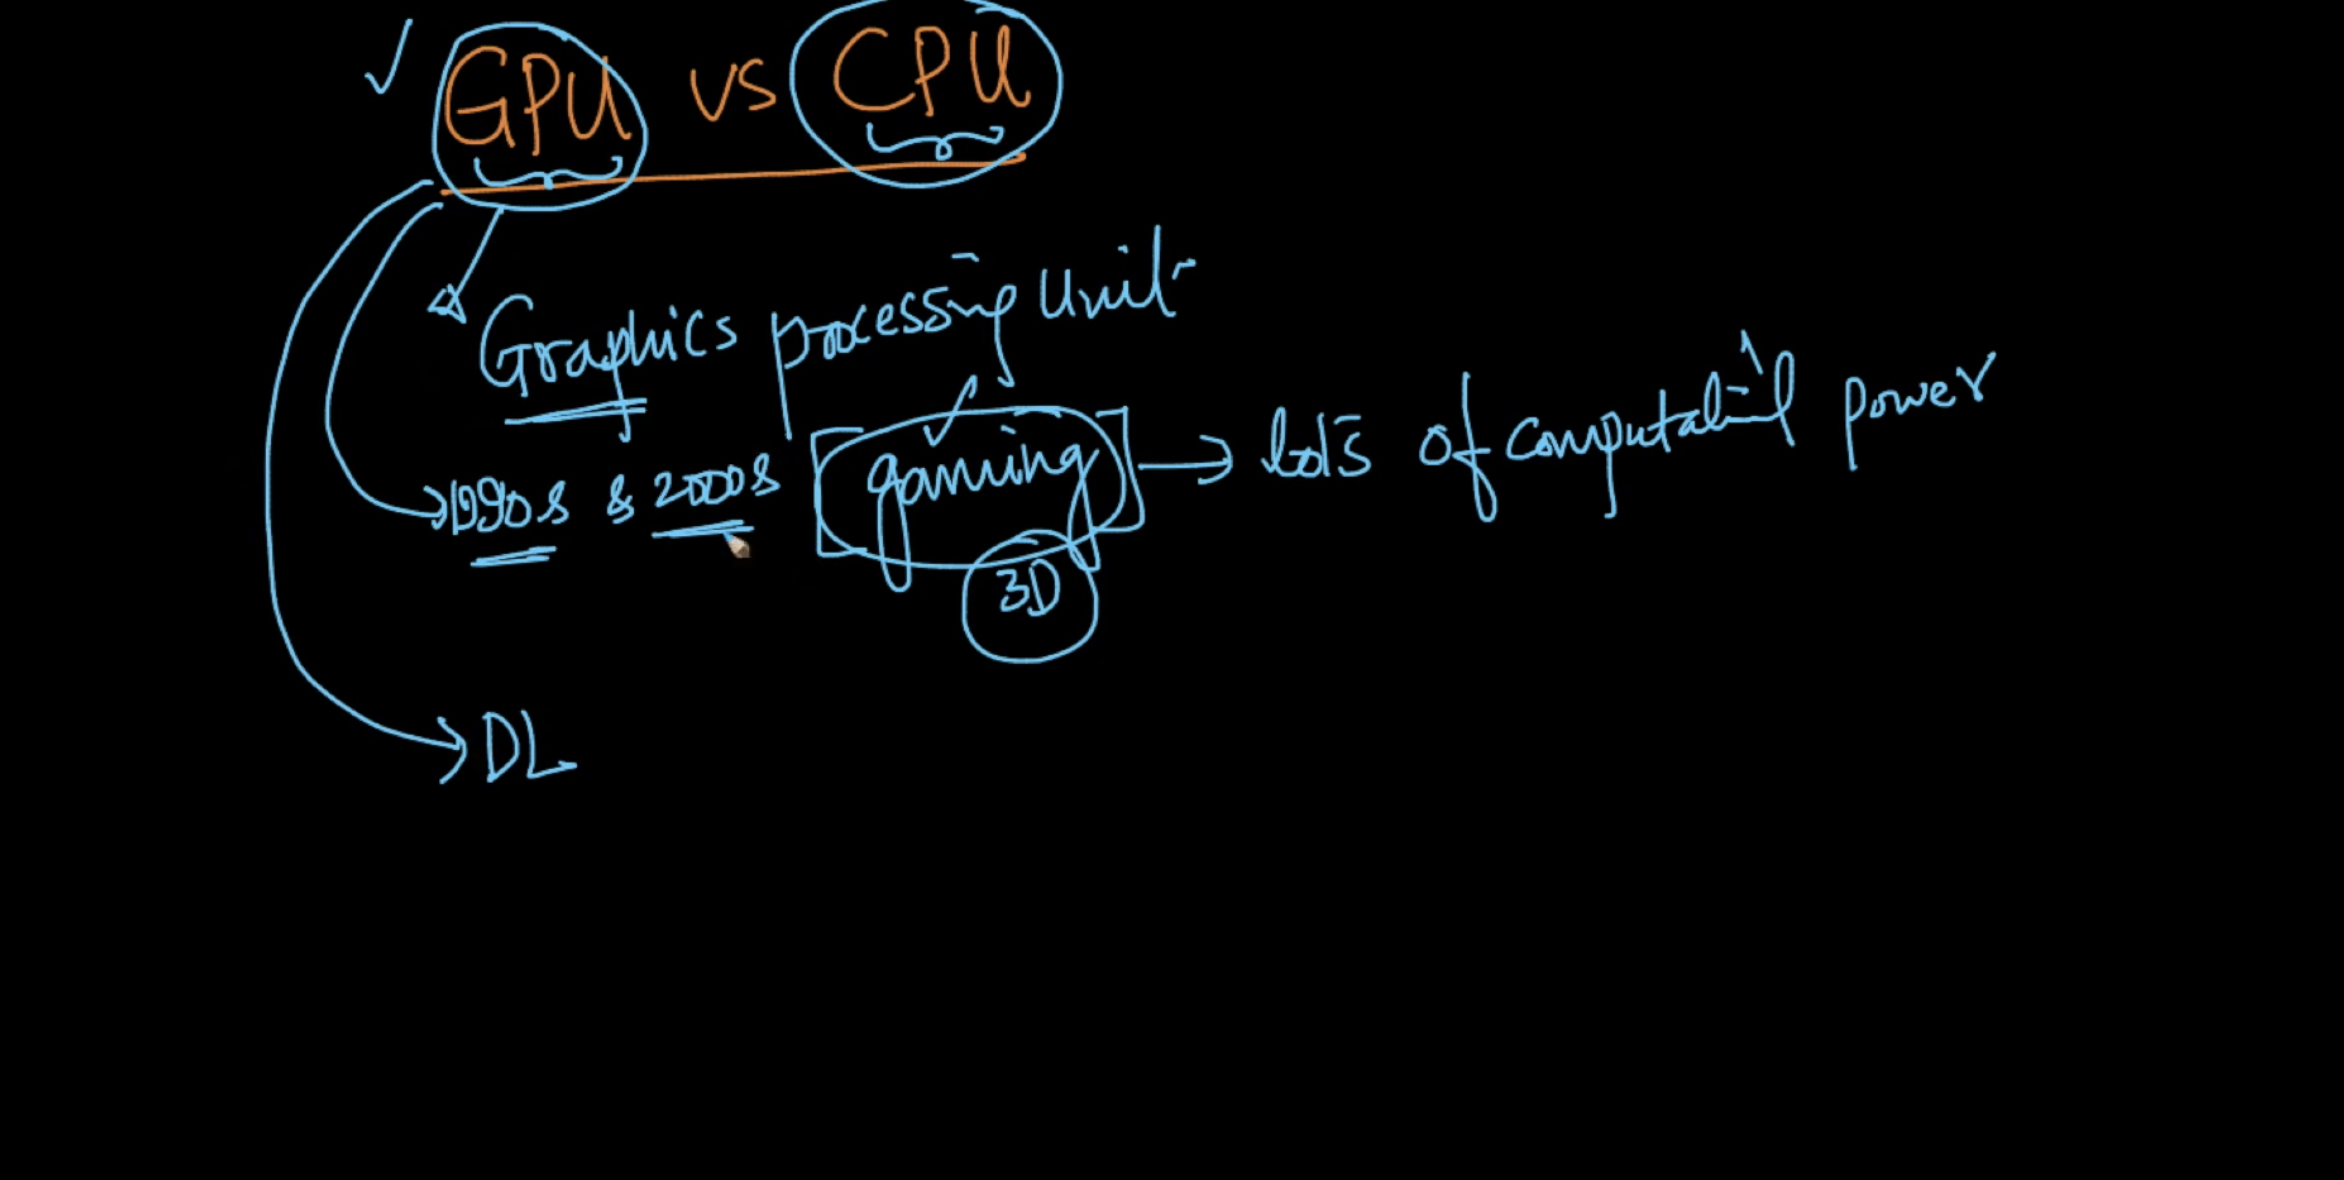 GPU vs CPU
Graphics processing Unit
1990s & 2000s gaming → lots of computat'l power
3D
DL